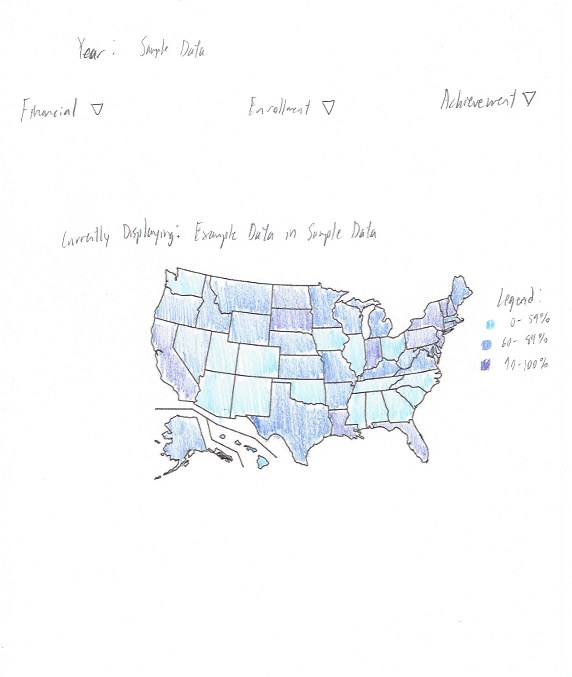 Year: Sample Data
Financial ▽ Enrollment ▽ Achievement ▽
Currently Displaying: Example Data in Sample Data
Legend:
0-59%
60-89%
90-100%